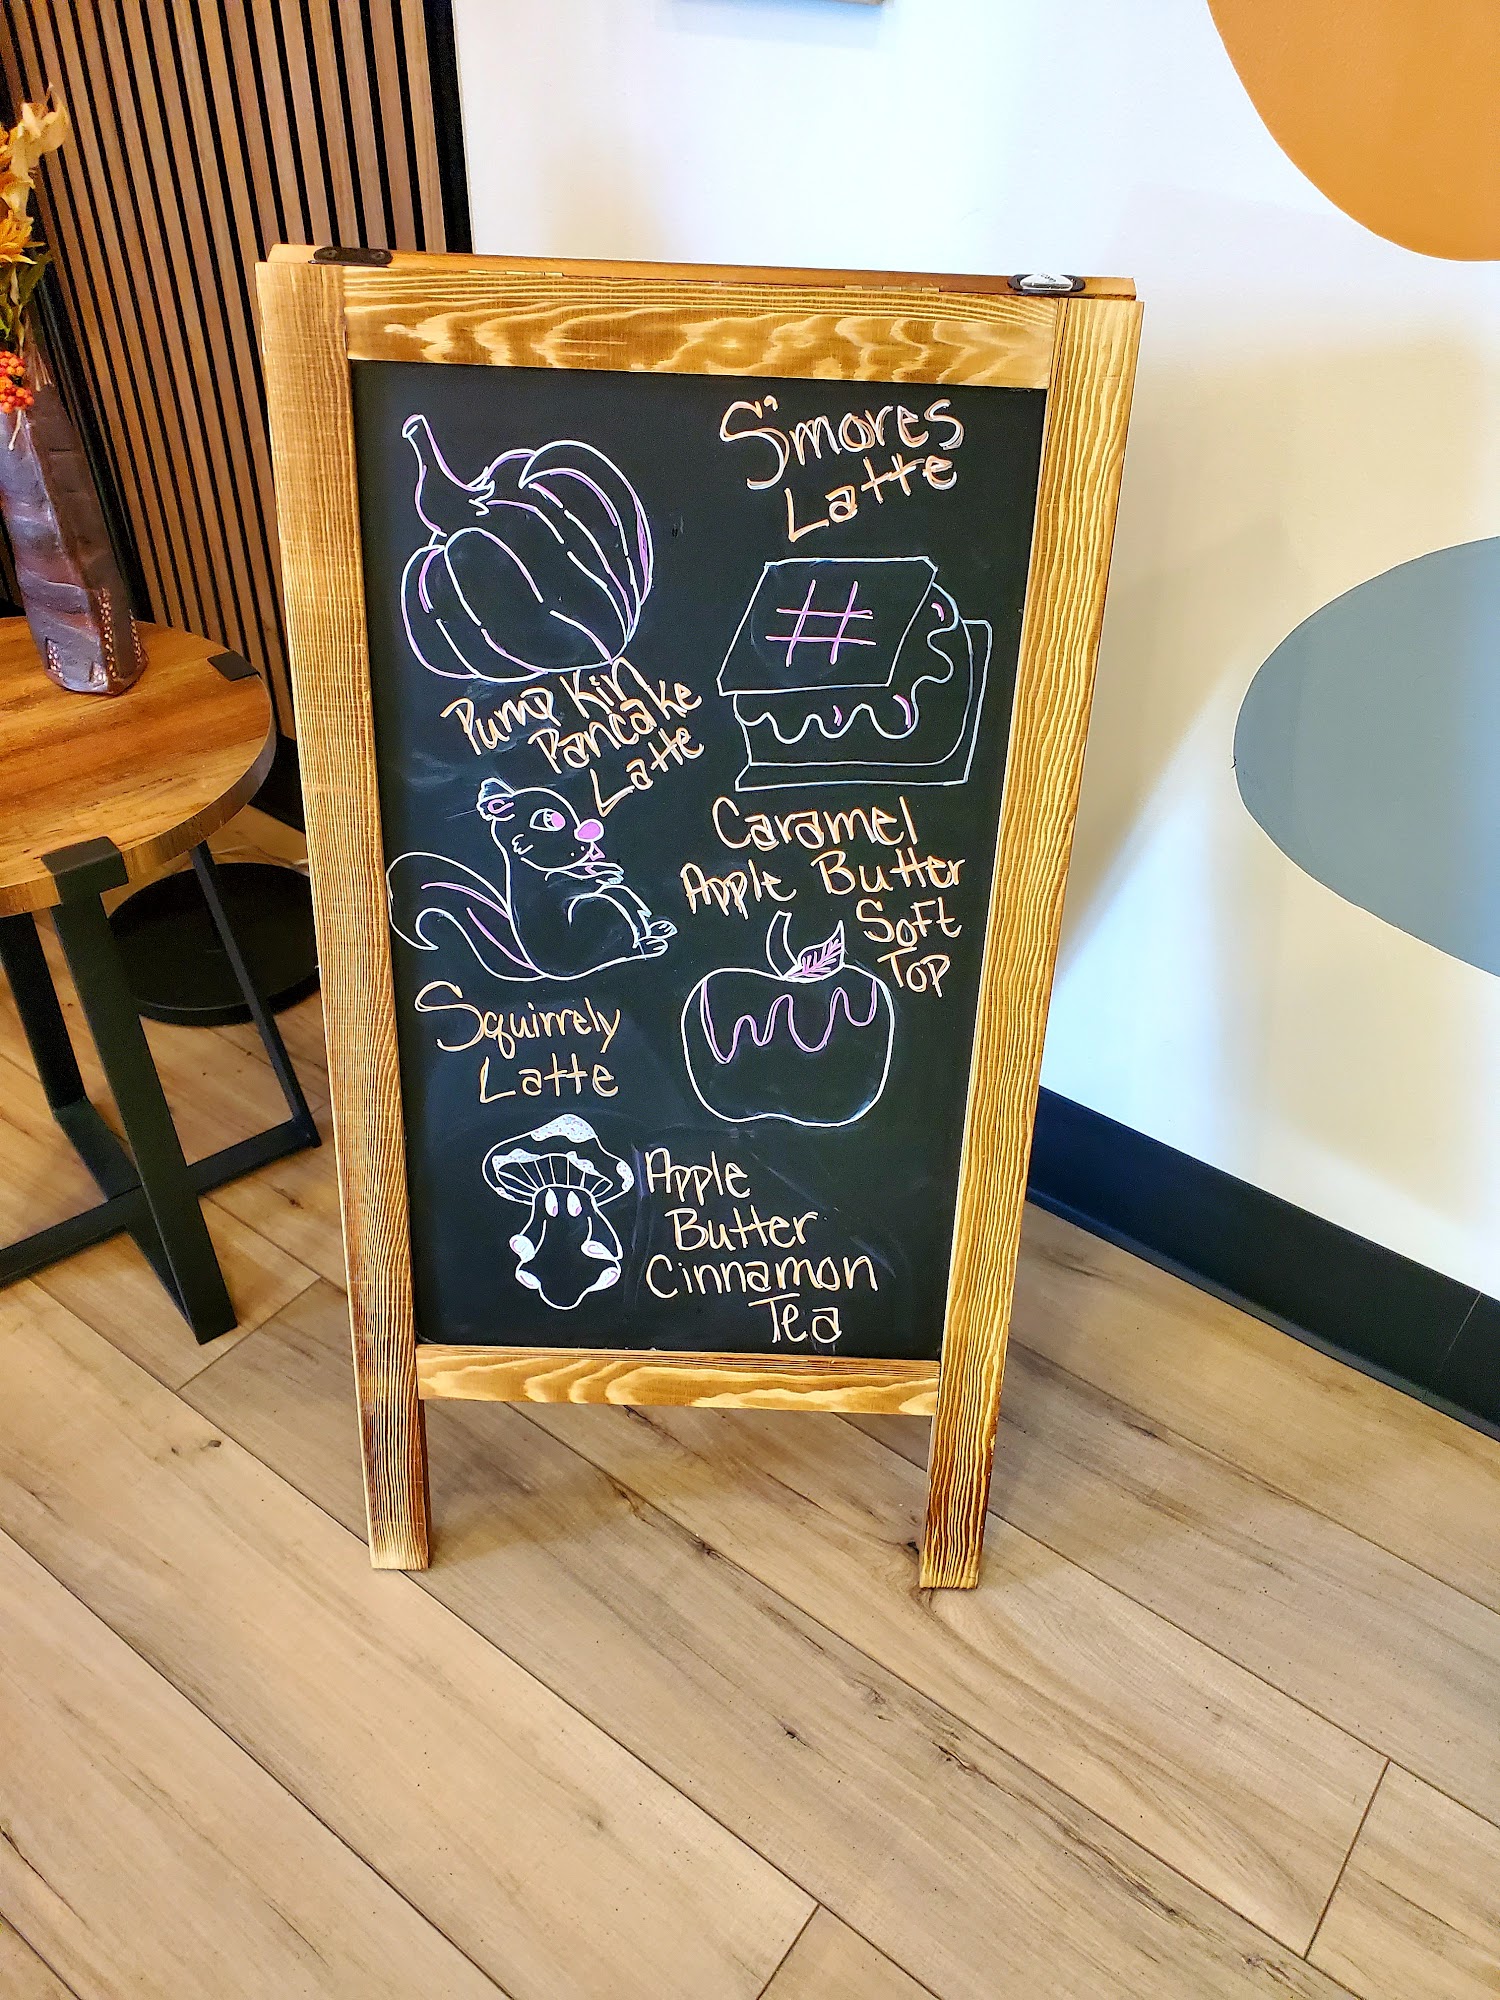 S'mores
Latte
Pumpkin
Pancake
Latte
Caramel
Apple Butter
Soft
Top
Squirrely
Latte
Apple
Butter
Cinnamon
Tea